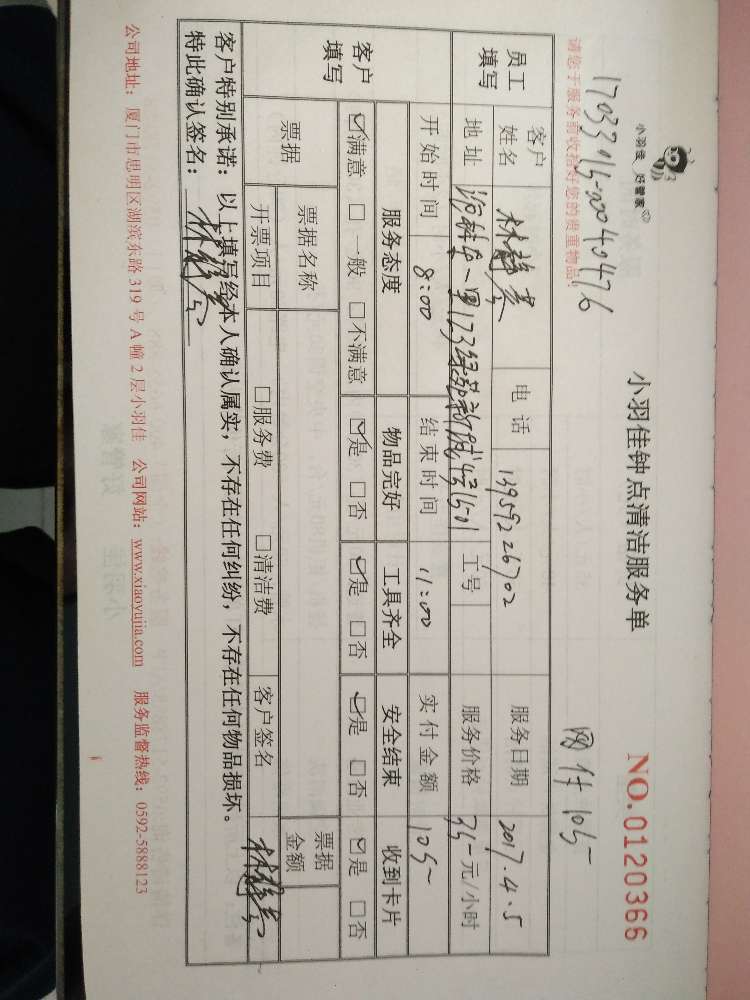 小羽佳 好管家
小羽佳钟点清洁服务单
NO.0120366
170331915-00040476
网付 105
请您于服务前收拾好您的贵重物品!
员工填写
客户姓名 林静 电话 13959226702 服务日期 2017.4.5
地址 一里123 工号 服务价格 35 元/小时
开始时间 8:00 结束时间 11:00 实付金额 105
客户填写
服务态度 物品完好 工具齐全 安全结束 收到卡片
☑满意 □一般 □不满意 ☑是 □否 ☑是 □否 ☑是 □否 ☑是 □否
票据 票据名称 票据金额
开票项目 □服务费 □清洁费 客户签名 林静
客户特别承诺:以上填写经本人确认属实,不存在任何纠纷,不存在任何物品损坏。
特此确认签名: 林静
公司地址:厦门市思明区湖滨东路 319 号 A 幢 2 层小羽佳 公司网站:www.xiaoyujia.com 服务监督热线:0592-5888123